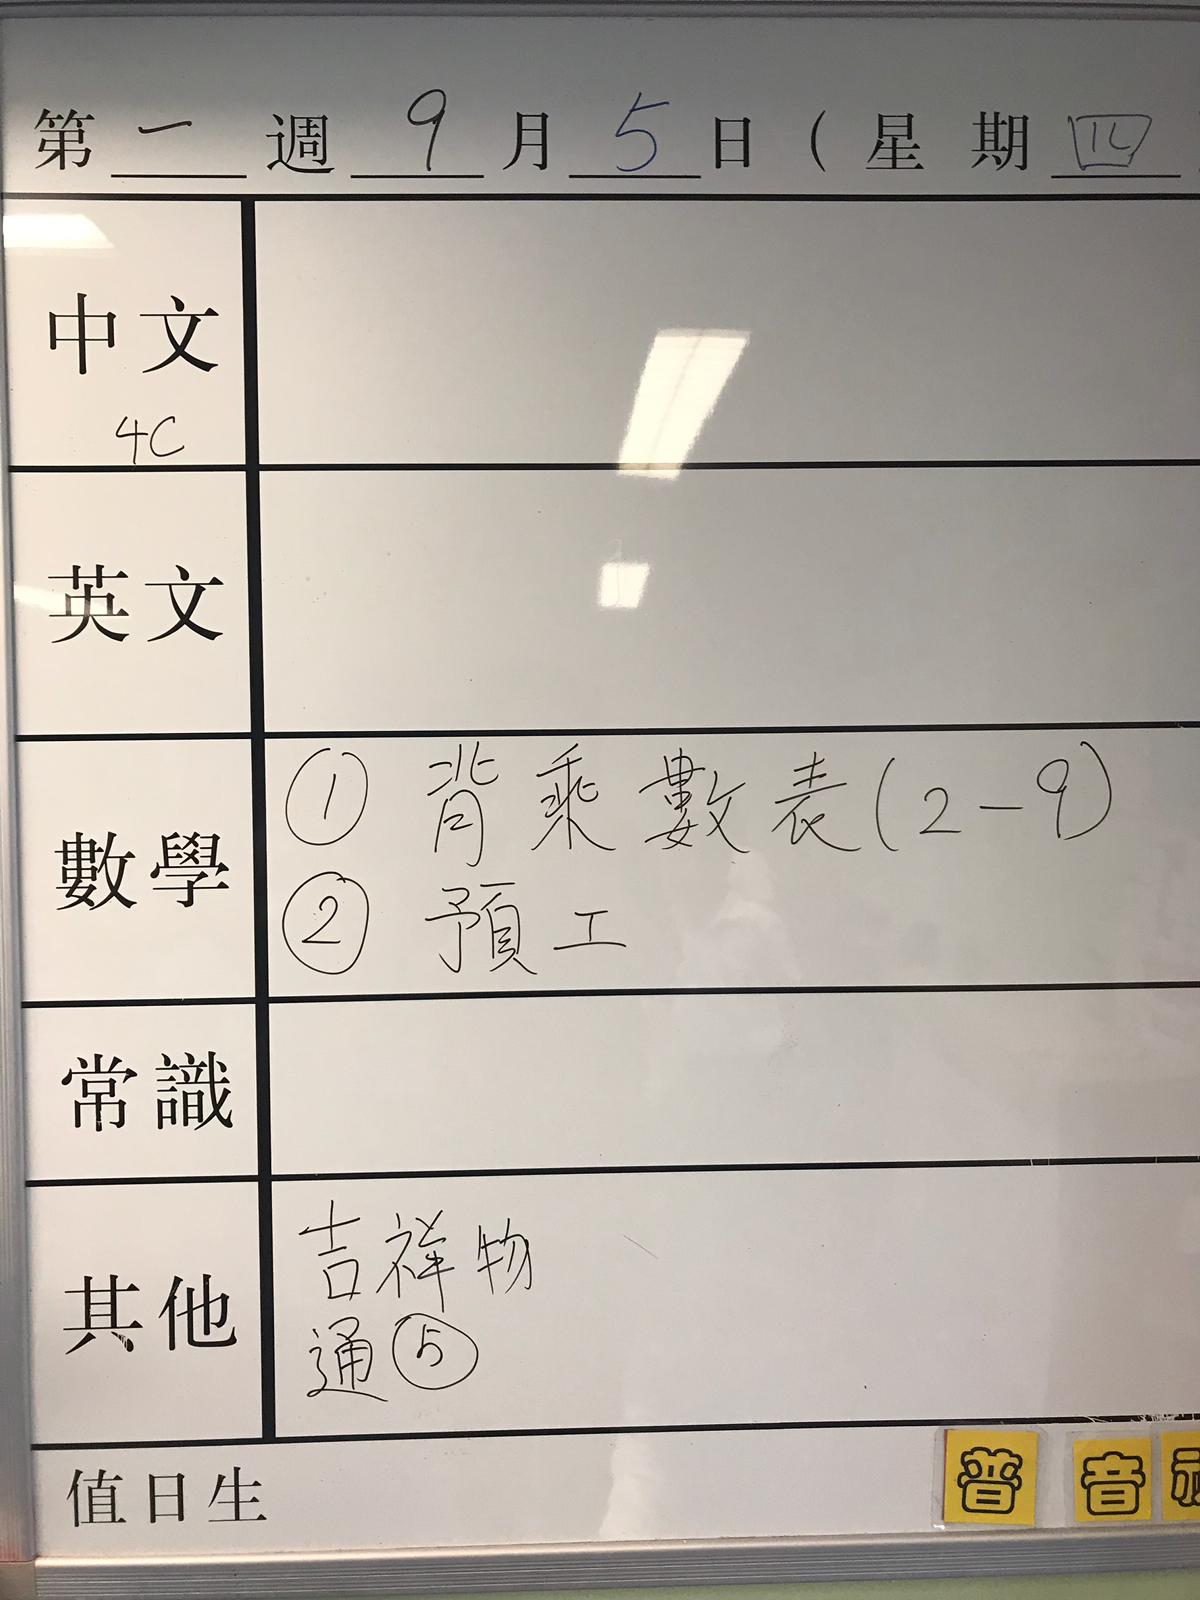 第 一 週 9 月 5 日 ( 星 期 四
中文
4C
英文
數學
① 背乘數表(2-9)
② 預工
常識
其他
吉祥物
通⑤
值日生
普 音 視